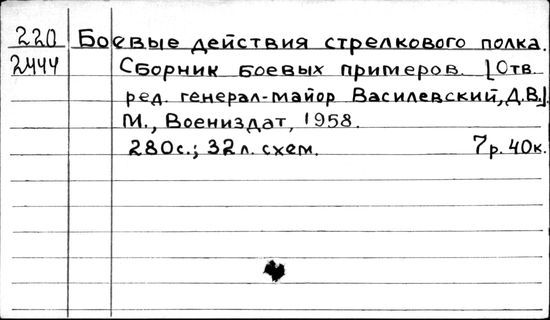 220 Боевые действия стрелкового полка.
2444 Сборник боевых примеров. [Отв.
ред. генерал-майор Василевский, Д.В.].
М., Воениздат, 1958.
280с.; 32л. схем. 7р. 40к.